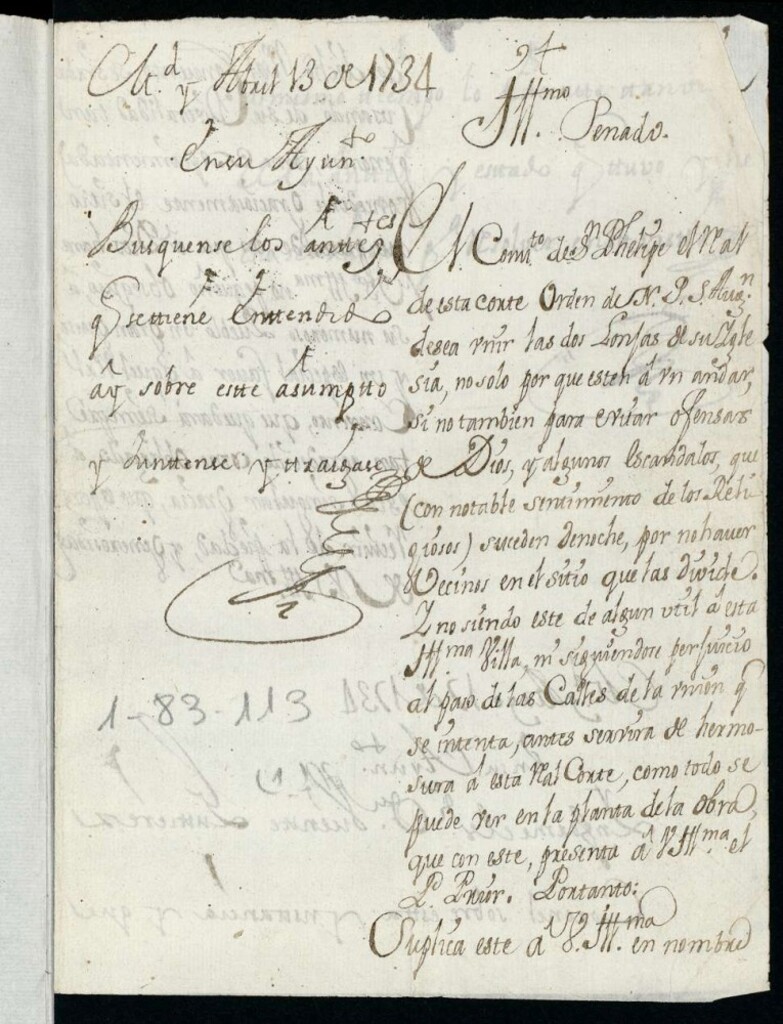 M.d y Abril 13 de 1734
En su Ayun.to
Busquense los antte.ces
q se tiene enttendido
ay sobre estte asumpto
y Junttense y ttraigase
1-83-113
94
Ill.mo Senado.
El Conv.to de Sn Phelipe el Real
de esta corte Orden de N. P. S. Aug.n
desea vnir las dos Lonjas de su Igle
sia, no solo por que esten â vn andar,
si no tambien para evitar ofensas
de Dios, y algunos Escandalos, que
(con notable sentimiento de los Reli
giosos) suceden de noche, por no haver
Vecinos en el sitio que las divide.
Y no siendo este de algun vtil â esta
Ill.ma Villa, ni siguiendose perjuicio
al paso de las Calles de la vnion q
se intenta, antes servira de hermo-
sura â esta Real Corte, como todo se
puede ver en la planta de la obra,
que con este, presenta â V. Ill.ma el
P. Prior. Por tanto:
Suplica este â V. Ill.ma en nombre